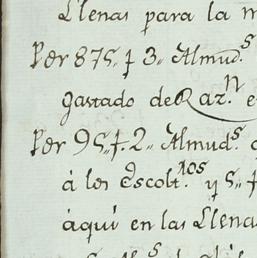 Llenas para la
Per 875 f 3 Almud.s
gastado de Raz.n
Per 95 f. 2 Almud.s
á los Escolt.ros y 5 f
àqui en las Llenas